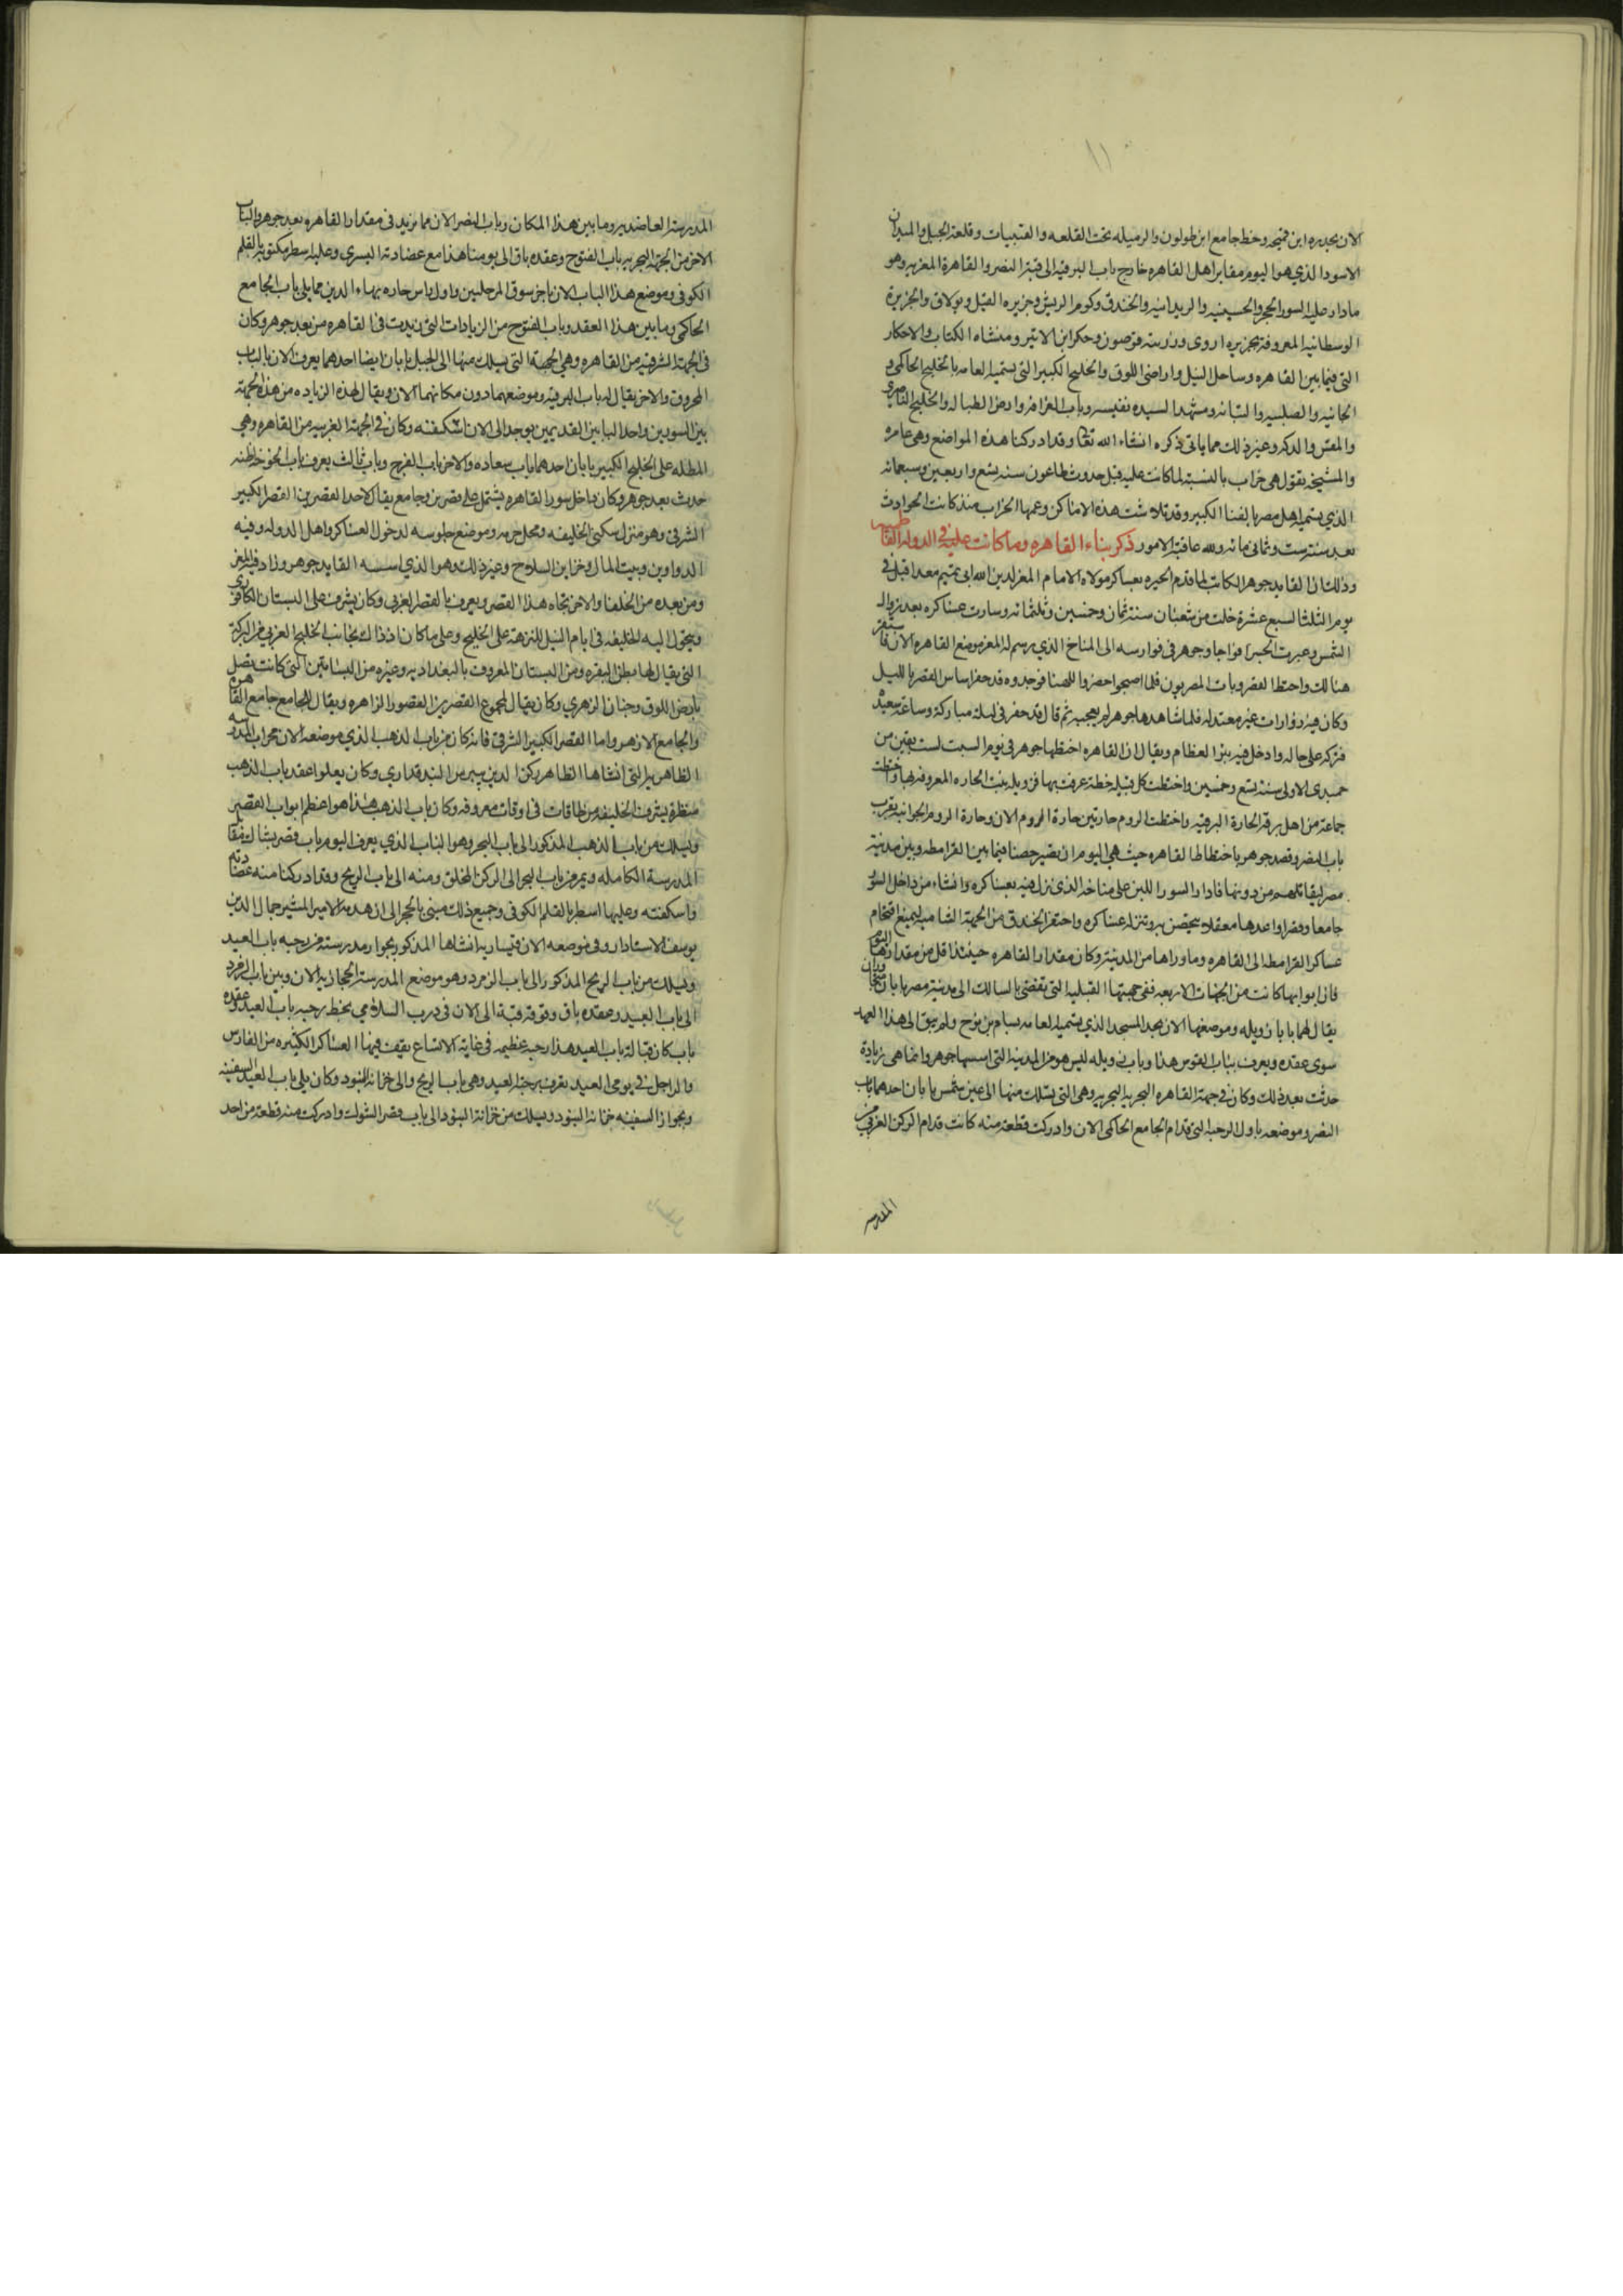 ١١
الان بجديره ابن قميحه وخط جامع ابن طولون والرميله تحت القلعه والقبيبات وقلعة الجبل والميدان
الاسود الذي هو اليوم مقابر اهل القاهره خارج باب البرقيه الى قبة النصر والقاهرة المعزيه وهو
مادار عليه السور الحجر والحسينيه والريدانيه والخندق وكوم الريش وجزيره الفيل وبولاق والجزيرة
الوسطانيه المعروفه بجزيره اروى وزريبة قوصون وحكر ابن الاثير ومنشاه الكتاب والاحكار
التي فيما بين القاهره وساحل النيل واراضي اللوق والخليج الكبير التي يسميه العامه بالخليج الحاكمي و
الحانيه والصليبه والتبانه ومشهد السيده نفيسه وباب القرافه وارض الطباله والخليج الناصري
والمقس والدكه وغير ذلك مما ياتي ذكره انشاء الله تعا وقد ادركنا هذه المواضع وهي عامره
والمشيخه تقول هي خراب بالنسبة لما كانت عليه قبل حدوث طاعون سنه تسع واربعين وسبعمائه
الذي يسميه اهل مصر بالفنا الكبير وقد تلاشت هذه الاماكن وعمها الخراب منذ كانت الحوادث
بعد سنة ست وثماني مائه ولله عاقبة الامور ذكر بناء القاهره وما كانت عليه في الدوله الفاطميه
وذلك ان القايد جوهر الكاتب لما قدم الجيزه بعساكر مولاه الامام المعز لدين الله ابي تميم معد اقبل في
يوم الثلثا لسبع عشرة خلت من شعبان سنة ثمان وخمسين وثلثمائه وسارت عساكره بعد زوال
الشمس وعبرت الجسر افواجا وجوهر في فوارسه الى المناخ الذي رسم له المعز موضع القاهره الان فاستقر
هنالك واختط القصر وبات المصريون فلما اصبحوا حضروا للهنا فوجدوه قد حفر اساس القصر بالليل
وكان فيه زوارات غير معتدله فلما شاهدها جوهر لم يعجبه ثم قال قد حفر في ليلة مباركة وساعة سعيدة
فتركه على حاله وادخل فيه بئر العظام ويقال ان القاهره اختطها جوهر في يوم السبت لست بقين من
جميدى الاولى سنة تسع وخمسين واختطت كل قبيله خطة عرفت بها فزويله بنت الحاره المعروفه بها واختطت
جماعة من اهل برقه الحارة البرقيه واختطت الروم حارتين حارة الروم الان وحارة الروم الجوانيه بقرب
باب النصر وقصد جوهر باختطاط القاهره حيث هي اليوم ان تصير حصنا فيما بين القرامطه وبين مدينة
مصر ليقاتلهم من دونها فادار السور اللبن على مناخه الذي نزل فيه بعساكره وانشاء من داخل السور
جامعا وقصرا واعدها معقلا يتحصن به وتنزله عساكره واحتفر الخندق من الجهة الشاميه ليمنع اقتحام
عساكر القرامطه الى القاهره وما وراها من المدينة وكان مقدار القاهره حينئذ اقل من مقدارها اليوم
فان ابوابها كانت من الجهات الاربعه ففي جهتها القبليه التي تفضي بالسالك الى مدينة مصر بابان متجاوران
يقال لهما بابا زويله وموضعهما الان بحد المسجد الذي يسميه العامه بسام بن نوح ولم يبق الى هذا العهد
سوى عقده ويعرف بباب القوس هذا وباب زويله ليس هو من المدينه التي اسسها جوهر وانما هي زيادة
حدثت بعد ذلك وكان في جهة القاهره البحريه وهي التي يسلك منها الى عين شمس بابان احدهما باب
النصر وموضعه باول الرحبه التي قدام الجامع الحاكمي الان وادركت قطعة منه كانت قدام الركن الغربي من
المدرسه
المدرسة العاضديه وما بين هذا المكان وباب النصر الان مما يزيد في مقدار القاهره بعد جوهر والباب
الاخر من الجهة البحريه باب الفتوح وعقده باق الى يومنا هذا مع عضادته اليسرى وعليه اسطر مكتوبة بالقلم
الكوفي وموضع هذا الباب الان باخر سوق المرحلين واول راس حاره بهاء الدين مما يلي باب الجامع
الحاكمي وما بين هذا العقد وباب الفتوح من الزيادات التي زيدت في القاهره من بعد جوهر وكان
في الجهة الشرقيه من القاهره وهي الجهة التي يسلك منها الى الجبل بابان ايضا احدهما يعرف الان بالباب
المحروق والاخر يقال له باب البرقيه وموضعهما دون مكانهما الان ويقال لهذه الزياده من هذه الجهة
بين السورين واحد البابين القديمين يوجد الى الان اسكفته وكان في الجهة الغربيه من القاهره وهي
المطله على الخليج الكبير بابان احدهما باب سعاده والاخر باب الفرج وباب ثالث يعرف بباب الخوخه اظنه
حدث بعد جوهر وكان داخل سور القاهره يشتمل على قصرين وجامع يقال لاحد القصرين القصر الكبير
الشرقي وهو منزل سكنى الخليفه ومحل حرمه وموضع جلوسه لدخول العساكر واهل الدوله وفيه
الدواوين وبيت المال وخزاين السلاح وغير ذلك وهو الذي اسسه القايد جوهر وزاد فيه المعز
ومن بعده من الخلفا والاخر تجاه هذا القصر ويعرف بالقصر الغربي وكان يشرف على البستان الكافوري
ويتحول اليه الخليفه في ايام النيل للنزهة على الخليج وعلى ما كان اذ ذاك بجانب الخليج الغربي من البركة
التي يقال لها بطن البقره ومن البستان المعروف بالبغداديه وغيره من البساتين التي كانت تتصل
بارض اللوق وجنان الزهري وكان يقال لمجموع القصرين القصور الزاهره ويقال للجامع جامع القاهره
والجامع الازهر واما القصر الكبير الشرقي فانه كان من باب الذهب الذي موضعه الان محراب المدرسه
الظاهريه التي انشاها الظاهر ركن الدين بيبرس البندقداري وكان يعلوا عقد باب الذهب
منظرة يشرف الخليفه من طاقات في اوقات معروفه وكان باب الذهب هذا هو اعظم ابواب القصر
ويسلك من باب الذهب المذكور الى باب البحر وهو الباب الذي يعرف اليوم بباب قصر بشتاك مقابل
المدرسة الكامله ويمر من باب البحر الى الركن المخلق ومنه الى باب الريح وقد ادركنا منه عضادتيه
واسكفته وعليها اسطر بالقلم الكوفي وجميع ذلك مبني بالحجر الى ان هدمه الامير المشير جمال الدين
يوسف الاستادار وفي موضعه الان قيساريه انشاها المذكور بجوار مدرسته من رحبه باب العيد
ويسلك من باب الريح المذكور الى باب الزمرد وهو موضع المدرسة الحجازيه الان وبين باب الزمرد
الى باب العيد وعقده باق وفوقه قبة الى الان في درب السلامي بخط رحبه باب العيد عقده
باب كان قبالة باب العيد هذا رحبه عظيمه في غاية الاتساع يقف فيها العساكر الكثيره من الفارس
والراجل في يومي العيد تعرف برحبة العيد وهي باب الريح والى خزانه البنود وكان يلي باب العيد السفينه
وبجوار السفينه خزانه البنود ويسلك من خزانة البنود الى باب قصر الشوك وادركت منه قطعة من احد